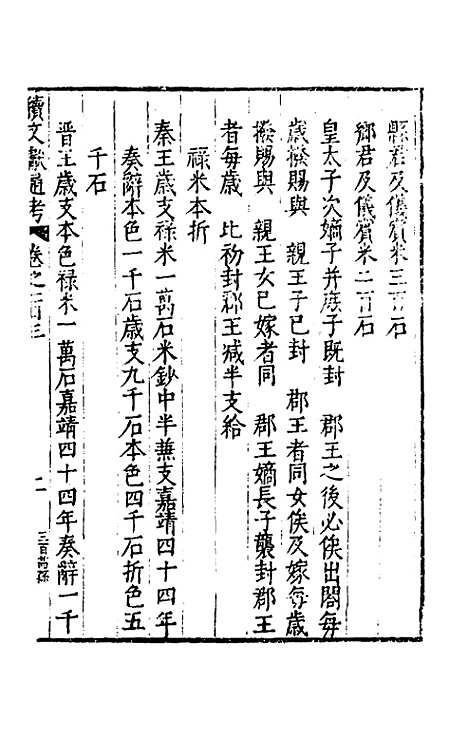 縣君及儀賓米三百石
鄉君及儀賓米二百石
皇太子次嫡子并庶子既封　郡王之後必俟出閤每
歲撥賜與　親王子已封　郡王者同女俟及嫁每歲
撥賜與　親王女已嫁者同　郡王嫡長子襲封郡王
者每歲　比初封郡王减半支給
祿米本折
秦王歲支祿米一萬石米鈔中半兼支嘉靖四十四年
奏辭本色一千石歲支九千石本色四千石折色五
千石
晋王歲支本色禄米一萬石嘉靖四十四年奏辭一千
續文獻通考 卷之一百三 二